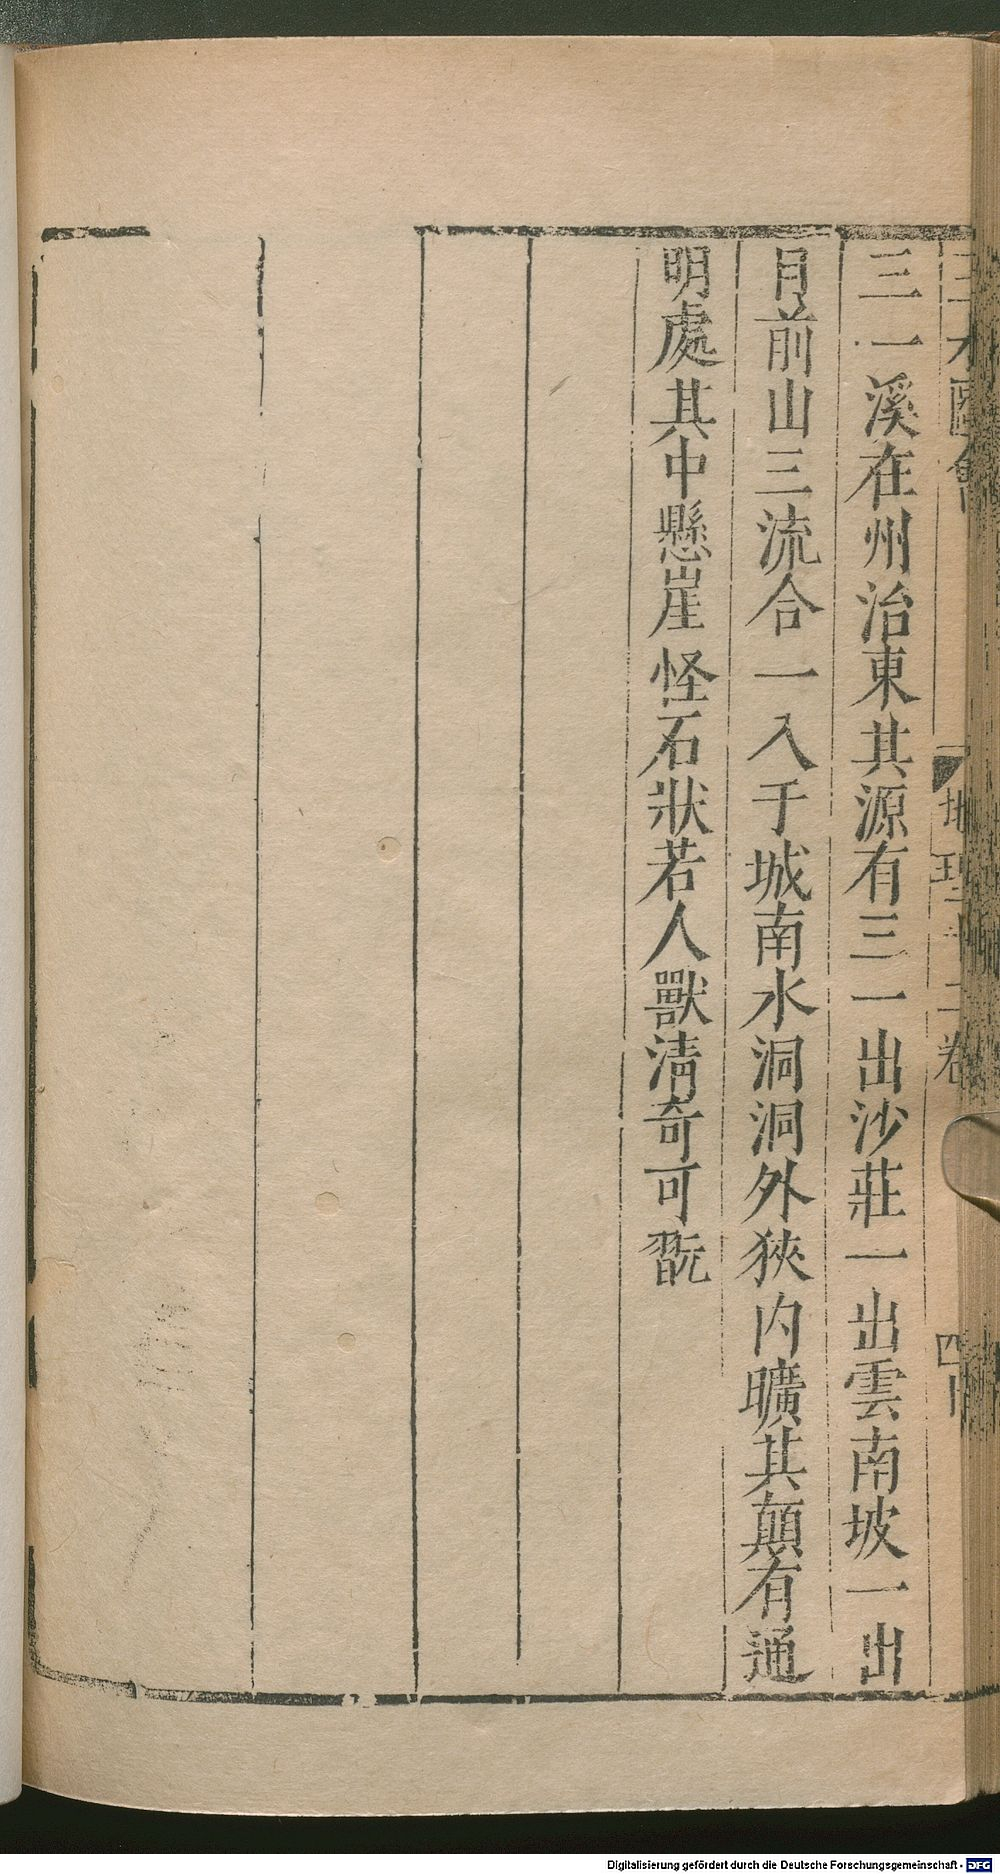 三才圖會 地理十二卷 四十
三一溪在州治東其源有三一出沙莊一出雲南坡一出
月前山三流合一入于城南水洞洞外狹内曠其顛有通
明處其中懸崖怪石狀若人獸淸奇可翫
Digitalisierung gefördert durch die Deutsche Forschungsgemeinschaft - DFG